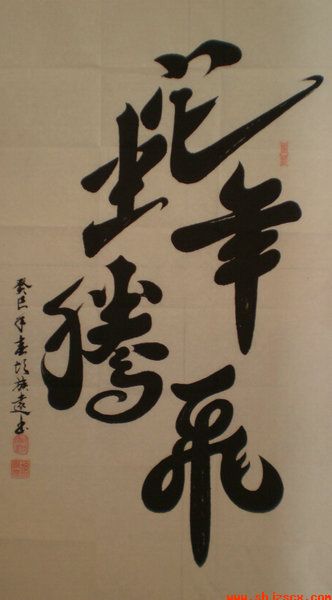 蛇年
騰飛
癸巳年春胡遠书
www.shjzscx.com